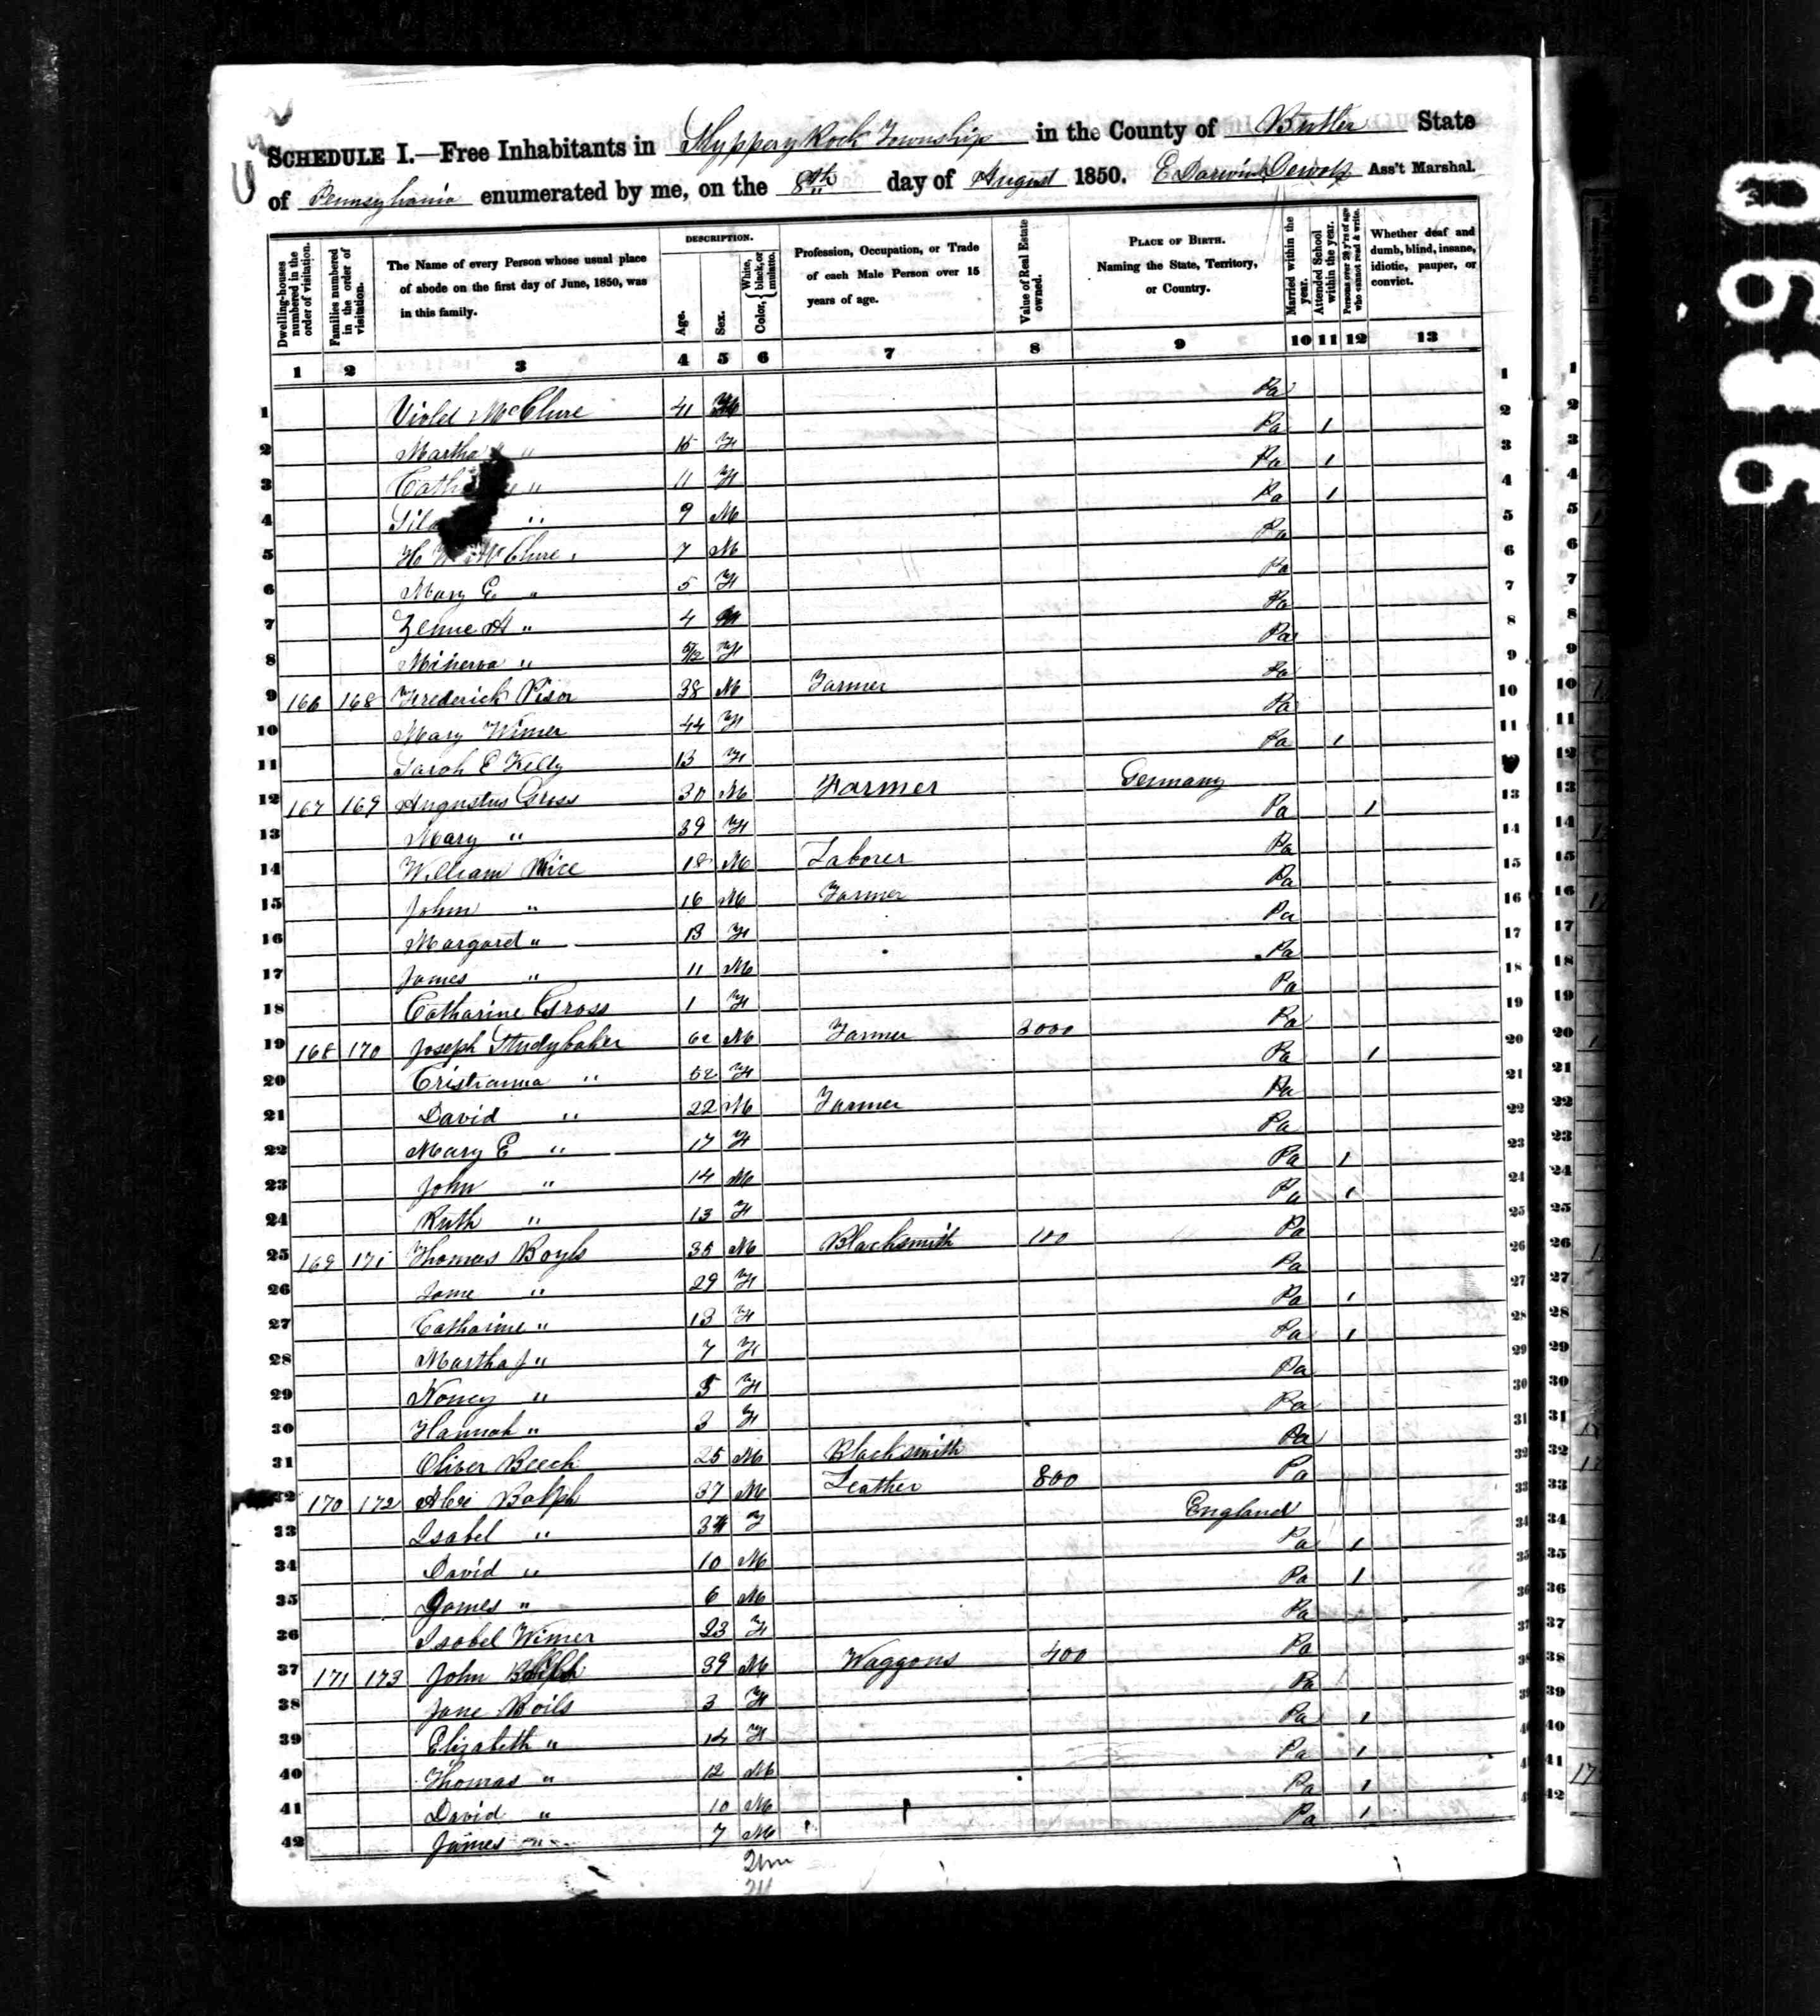 SCHEDULE I.—Free Inhabitants in Slyppery Rock Township in the County of Butler State
of Pennsylvania enumerated by me, on the 8th day of August 1850. E Darwin Dewolf Ass't Marshal.
Dwelling-houses numbered in the order of visitation.
Families numbered in the order of visitation.
The Name of every Person whose usual place of abode on the first day of June, 1850, was in this family.
DESCRIPTION.
Age.
Sex.
Color, { White, black, or mulatto.
Profession, Occupation, or Trade of each Male Person over 15 years of age.
Value of Real Estate owned.
PLACE OF BIRTH. Naming the State, Territory, or Country.
Married within the year.
Attended School within the year.
Persons over 20 y'rs of age who cannot read & write.
Whether deaf and dumb, blind, insane, idiotic, pauper, or convict.
1 2 3 4 5 6 7 8 9 10 11 12 13
1 Violet McClure 41 Pa 1
2 Martha " 15 F Pa 1 2
3 " 11 F Pa 1 3
4 " 9 M Pa 1 4
5 H McClure 7 M Pa 5
6 Mary E " 5 F Pa 6
7 A " 4 M Pa 7
8 Minerva " F Pa 8
9 166 168 Frederick Pisor 38 M Farmer Pa 9
10 Mary Wimer 44 F Pa 10
11 Sarah E Kelly 13 F Pa 1 11
12 167 169 Augustus Gross 30 M Farmer Germany
13 Mary " 39 F Pa 1 13
14 William Rice 18 M Laborer Pa 14
15 John " 16 M Farmer Pa 15
16 Margaret " 13 F Pa 16
17 James " 11 M Pa 17
18 Catharine Gross 1 F Pa 18
19 168 170 Joseph Studybaker 62 M Farmer 3000 Pa 19
20 Cristianna " 52 F Pa 1 20
21 David " 22 M Farmer Pa 21
22 Mary E " 17 F Pa 22
23 John " 14 M Pa 1 23
24 Ruth " 13 F Pa 1 24
25 169 171 Thomas Boyls 35 M Blacksmith 100 Pa 25
26 Jane " 29 F Pa 26
27 Catharine " 13 F Pa 1 27
28 Martha J " 7 F Pa 1 28
29 Nancy " 5 F Pa 29
30 Hannah " 3 F Pa 30
31 Oliver Beech 25 M Blacksmith Pa 31
32 170 172 Balph 37 M Leather 800 Pa 32
33 Isabel " F England 33
34 David " 10 M Pa 1 34
35 James " 6 M Pa 1 35
36 Isabel Wimer 23 F Pa 36
37 171 173 John Balph 39 M Waggons 400 Pa 37
38 Jane Boils 3 F Pa
39 Elizabeth " 14 F Pa 1
40 Thomas " 12 M Pa 1
41 David " 10 M Pa 1
42 James " 7 M Pa 1
91390